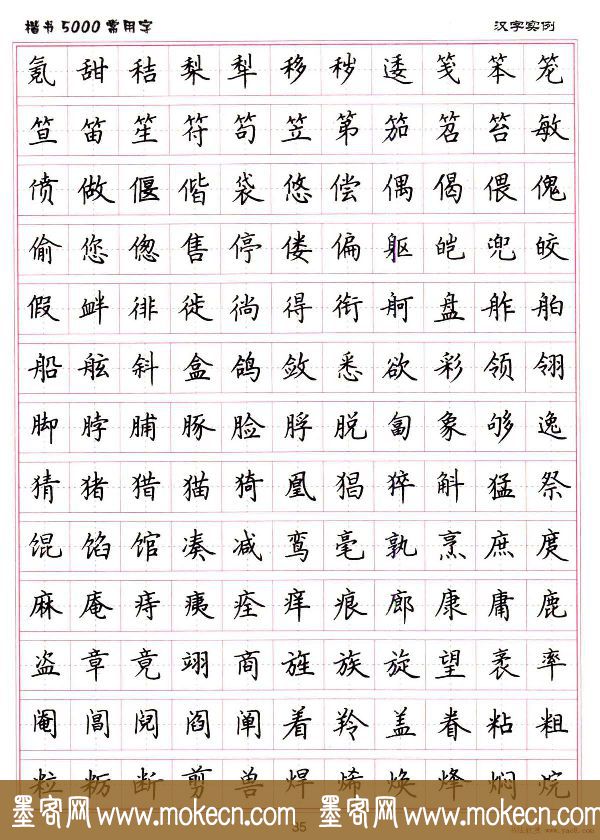 楷书5000常用字 汉字实例
氪甜秸梨犁移秽逶笺笨笼
笪笛笙符笱笠第笳笤笞敏
偾做偃偕袋悠偿偶偈偎傀
偷您偬售停偻偏躯皑兜皎
假衅徘徙徜得衔舸盘舴舶
船舷斜盒鸽敛悉欲彩领翎
脚脖脯豚脸脬脱匐象够逸
猜猪猎猫猗凰猖猝斛猛祭
馄馅馆凑减鸾毫孰烹庶度
麻庵痔痍痊痒痕廊康庸鹿
盗章竟翊商旌族旋望袤率
阉阊阋阎阐着羚盖眷粘粗
粒粝断剪兽焊烯焕烽焖烷
35
墨客网 www.mokecn.com 墨客网 www.mokecn.com 墨客网